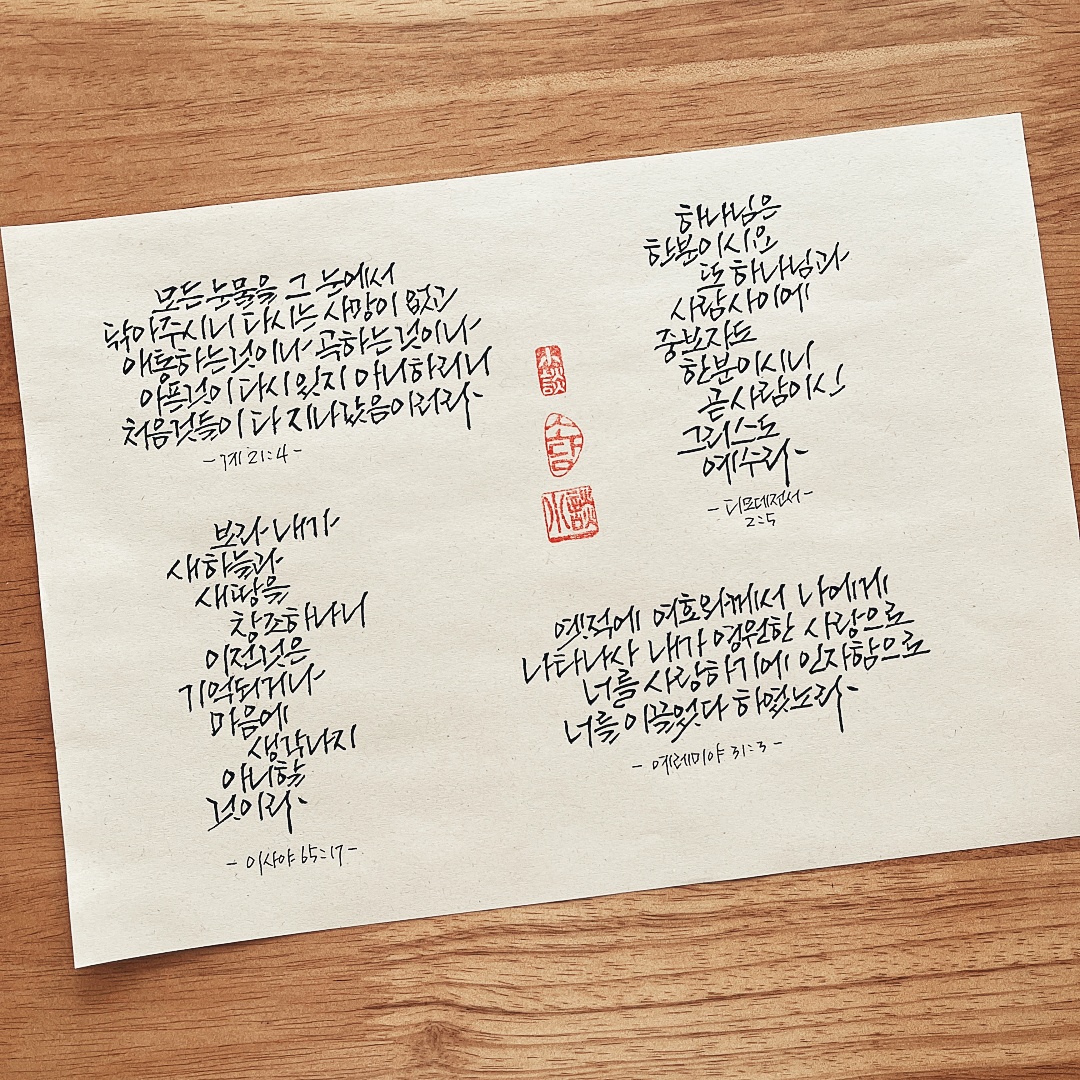 모든 눈물을 그 눈에서
닦아주시니 다시는 사망이 없고
애통하는것이나 곡하는것이나
아픈것이 다시 있지 아니하리니
처음것들이 다 지나갔음이러라-
-계 21:4-
보라 내가
새하늘과
새땅을
창조하나니
이전것은
기억되거나
마음에
생각나지
아니할
것이라-
-이사야 65:17-
하나님은
한분이시요
또 하나님과
사람사이에
중보자도
한분이시니
곧사람이신
그리스도
예수라-
-디모데전서-
2:5
옛적에 여호와께서 나에게
나타나사 내가 영원한 사랑으로
너를 사랑하기에 인자함으로
너를 이끌었다 하였노라-
- 예레미야 31:3 -